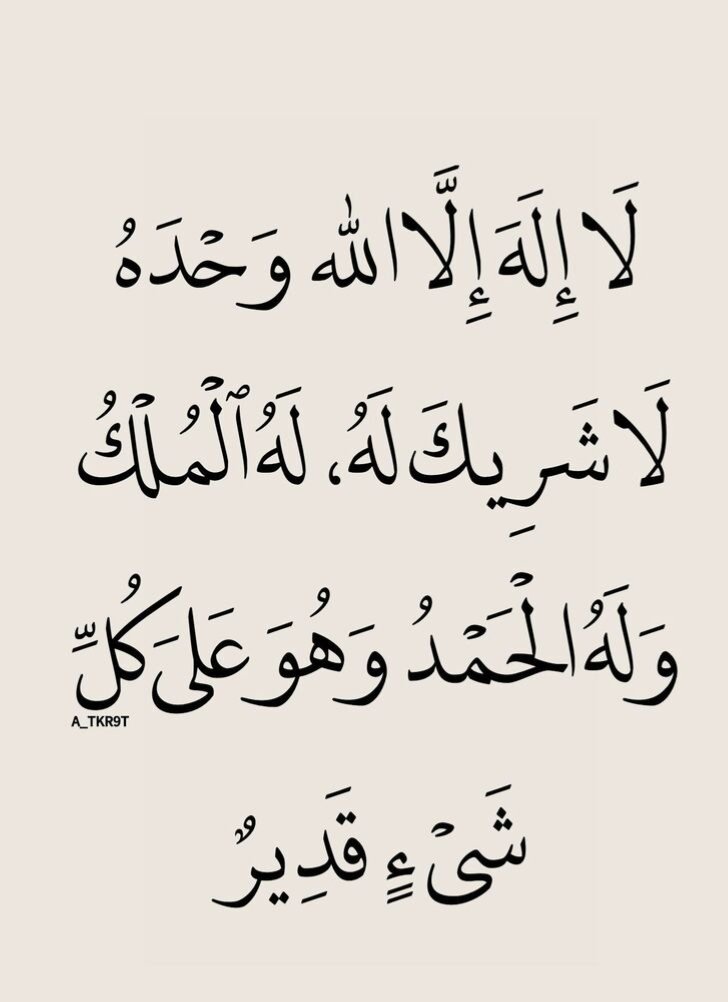 لَا إِلَهَ إِلَّا الله وَحْدَهُ
لَا شَرِيكَ لَهُ، لَهُ ٱلْمُلْكُ
وَلَهُ الْحَمْدُ وَهُوَ عَلَى كُلِّ
A_TKR9T
شَىْءٍ قَدِيرٌ